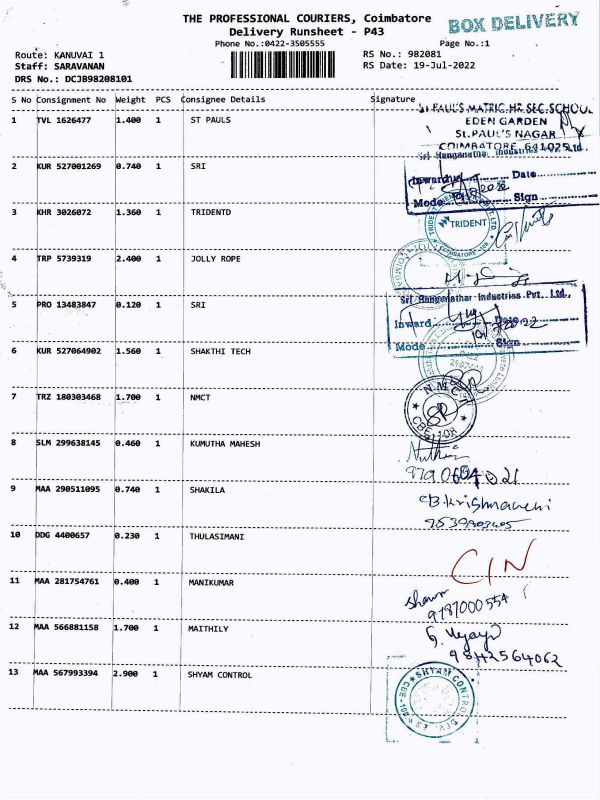 THE PROFESSIONAL COURIERS, Coimbatore
BOX DELIVERY
Delivery Runsheet - P43
Phone No.:0422-3505555
Page No.:1
Route: KANUVAI 1
RS No.: 982081
Staff: SARAVANAN
RS Date: 19-Jul-2022
DRS No.: DCJB98208101
S No Consignment No Weight PCS Consignee Details Signature
1 TVL 1626477 1.400 1 ST PAULS
ST.PAUL'S MATRIC.HR.SEC.SCHOOL
EDEN GARDEN
ST.PAUL'S NAGAR
COIMBATORE 641025
2 KUR 527001269 0.740 1 SRI
Sri Ranganathar Industries Pvt. Ltd.,
Inward Date
Mode Sign
3 KHR 3026072 1.360 1 TRIDENTD
TRIDENT
COIMBATORE
4 TRP 5739319 2.400 1 JOLLY ROPE
5 PRO 13483847 0.120 1 SRI
Sri Ranganathar Industries Pvt. Ltd.,
Inward Date
Mode Sign
6 KUR 527064902 1.560 1 SHAKTHI TECH
7 TRZ 180303468 1.700 1 NMCT
NMCT
CBE-108
8 SLM 299638145 0.460 1 KUMUTHA MAHESH
9 MAA 290511095 0.740 1 SHAKILA
10 DDG 4400657 0.230 1 THULASIMANI
CIN
11 MAA 281754761 0.400 1 MANIKUMAR
9787000554
12 MAA 566881158 1.700 1 MAITHILY
9842564062
13 MAA 567993394 2.900 1 SHYAM CONTROL
SHYAM CONTROL